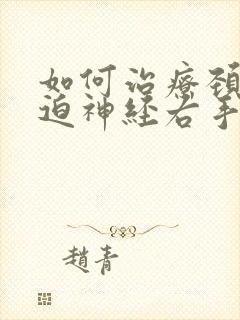 如何治療頸
迫神經右手
趙青